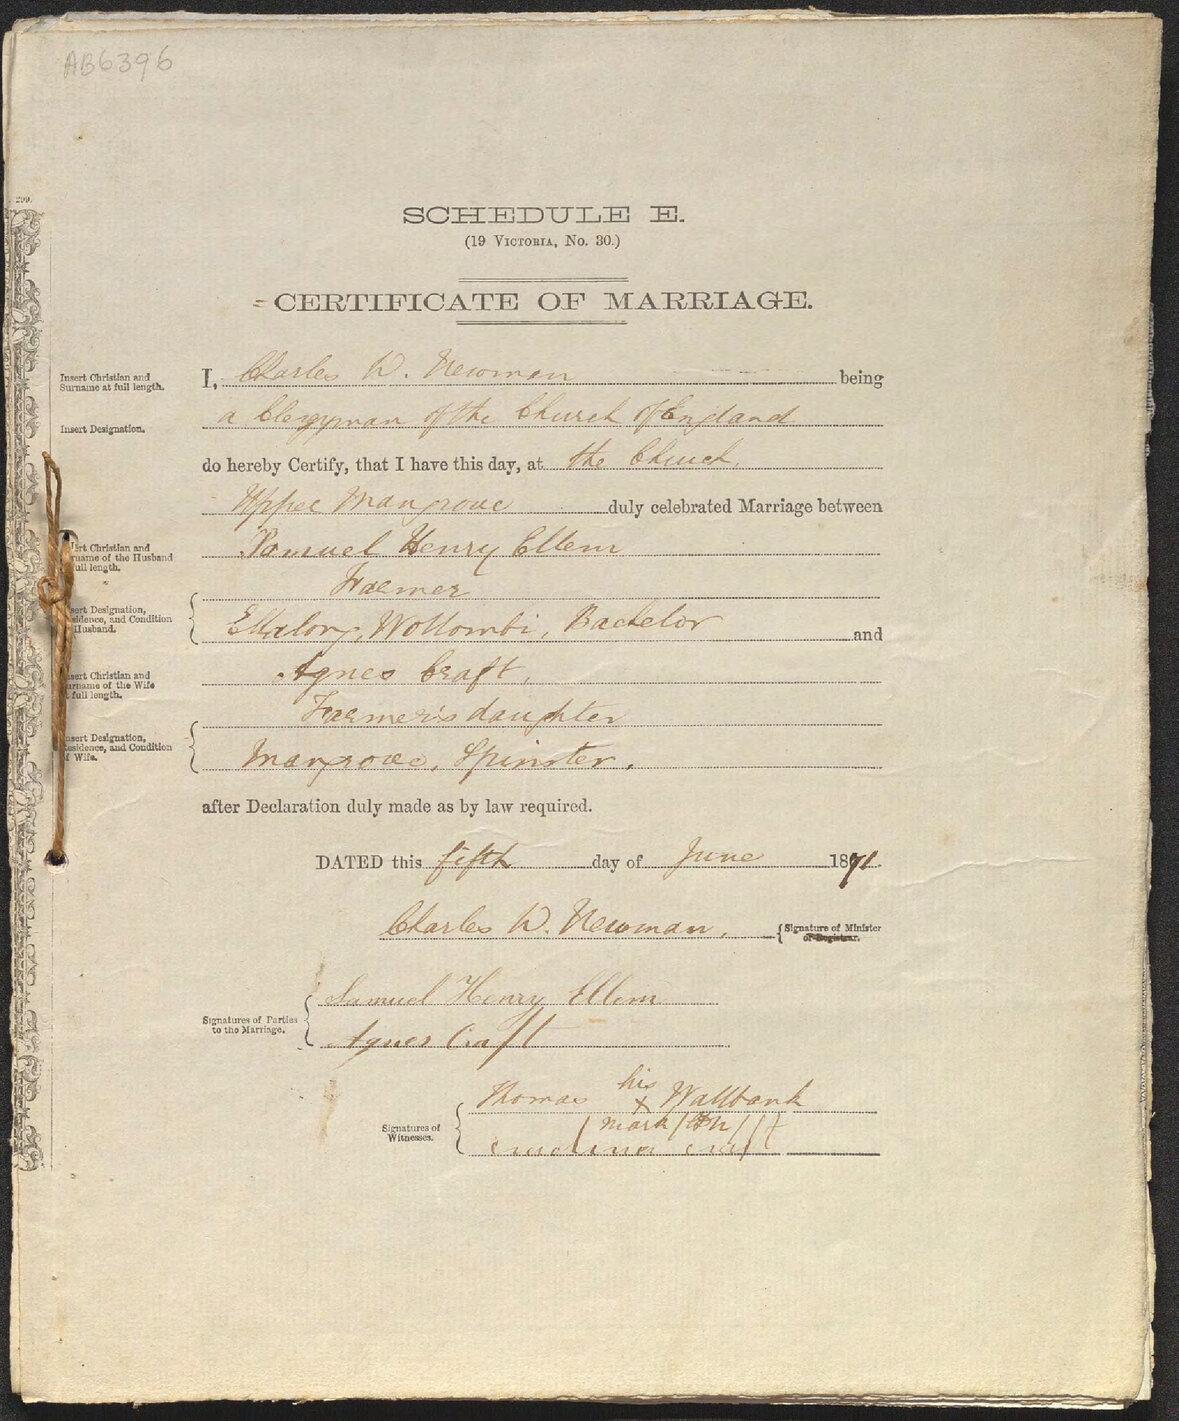 AB6396
299.
SCHEDULE E.
(19 VICTORIA, No. 30.)
CERTIFICATE OF MARRIAGE.
Insert Christian and
Surname at full length.
I, Charles W. Newman being
Insert Designation.
a Clergyman of the Church of England
do hereby Certify, that I have this day, at the Church,
Upper Mangrove duly celebrated Marriage between
Christian and
of the Husband
full length.
Samuel Henry Ellem
Farmer
Designation,
and Condition
Husband.
Ellalong, Wollombi, Bachelor and
Christian and
of the Wife
full length.
Agnes Craft,
Farmer's daughter
Designation,
and Condition
Wife.
Mangrove, Spinster.
after Declaration duly made as by law required.
DATED this fifth day of June 1871.
Charles W. Newman, Signature of Minister
or Registrar.
Signatures of Parties
to the Marriage.
Samuel Henry Ellem
Agnes Craft
Signatures of
Witnesses.
Thomas his x Wallbank
mark
Craft